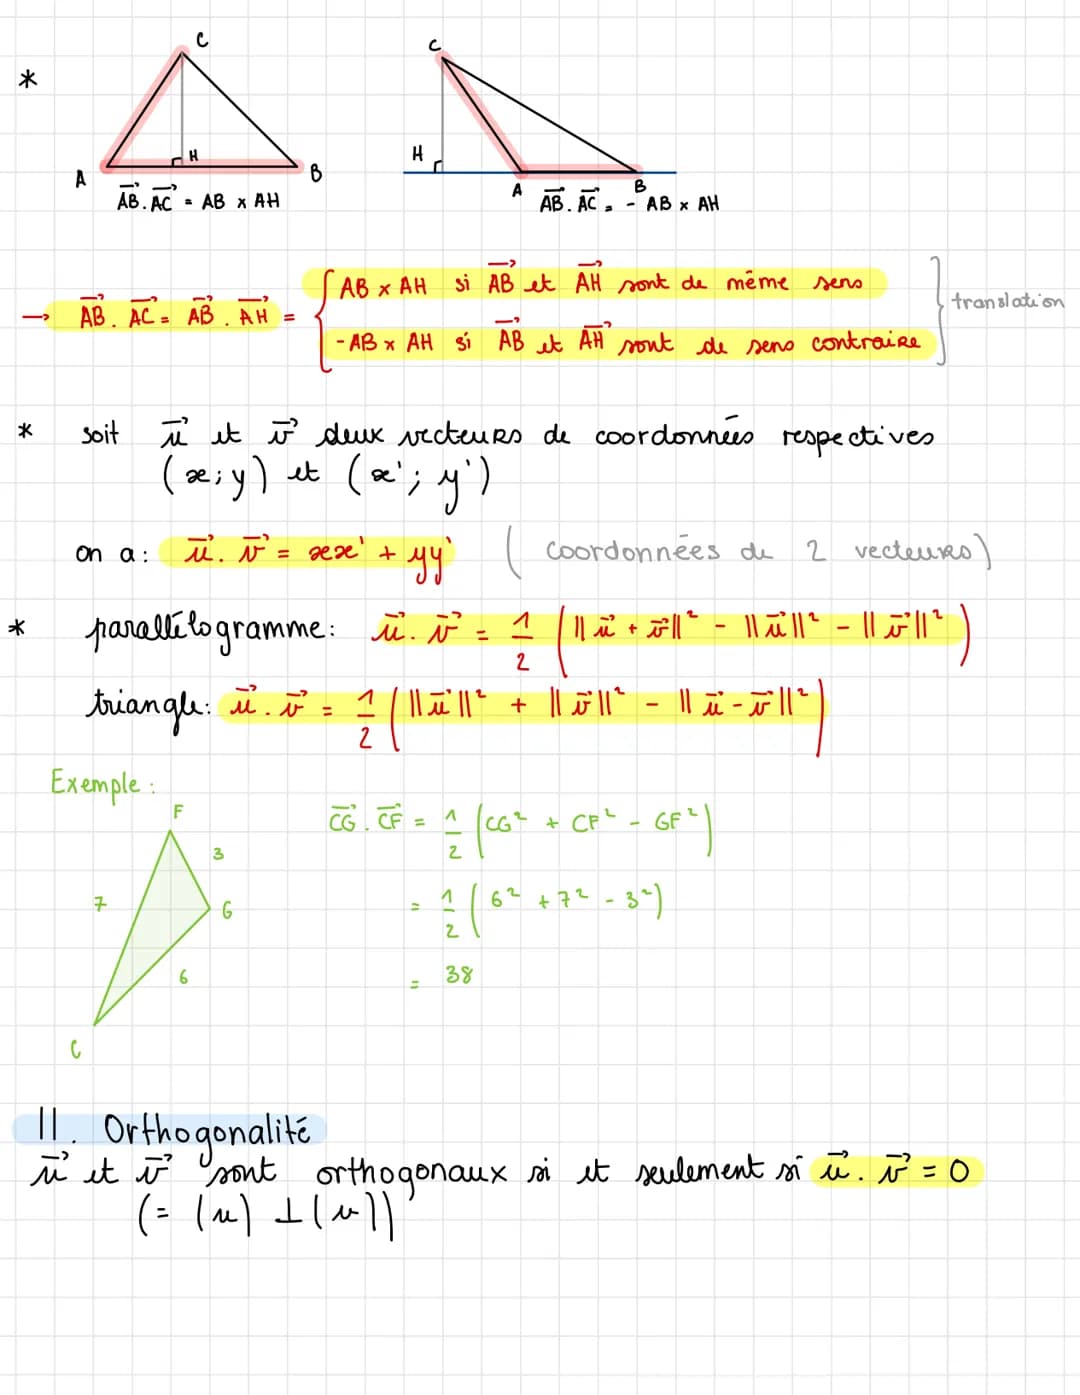 *
C
H
A
B
AB→. AC→ = AB x AH
C
H
A
B
AB→. AC→ = - AB x AH
→ AB→. AC→ = AB→. AH→ = { AB x AH si AB→ et AH→ sont de même sens
- AB x AH si AB→ et AH→ sont de sens contraire } translation
* soit u→ et v→ deux vecteurs de coordonnées respectives
(x; y) et (x'; y')
on a: u→. v→ = xx' + yy' (coordonnées de 2 vecteurs)
* parallélogramme: u→. v→ = 1/2 (||u→ + v→||² - ||u→||² - ||v→||²)
triangle: u→. v→ = 1/2 (||u→||² + ||v→||² - ||u→ - v→||²)
Exemple :
F
3
7
G
6
C
CG→. CF→ = 1/2 (CG² + CF² - GF²)
= 1/2 (6² + 7² - 3²)
= 38
II. Orthogonalité
u→ et v→ sont orthogonaux si et seulement si u→. v→ = 0
(= (u) ⊥ (v))